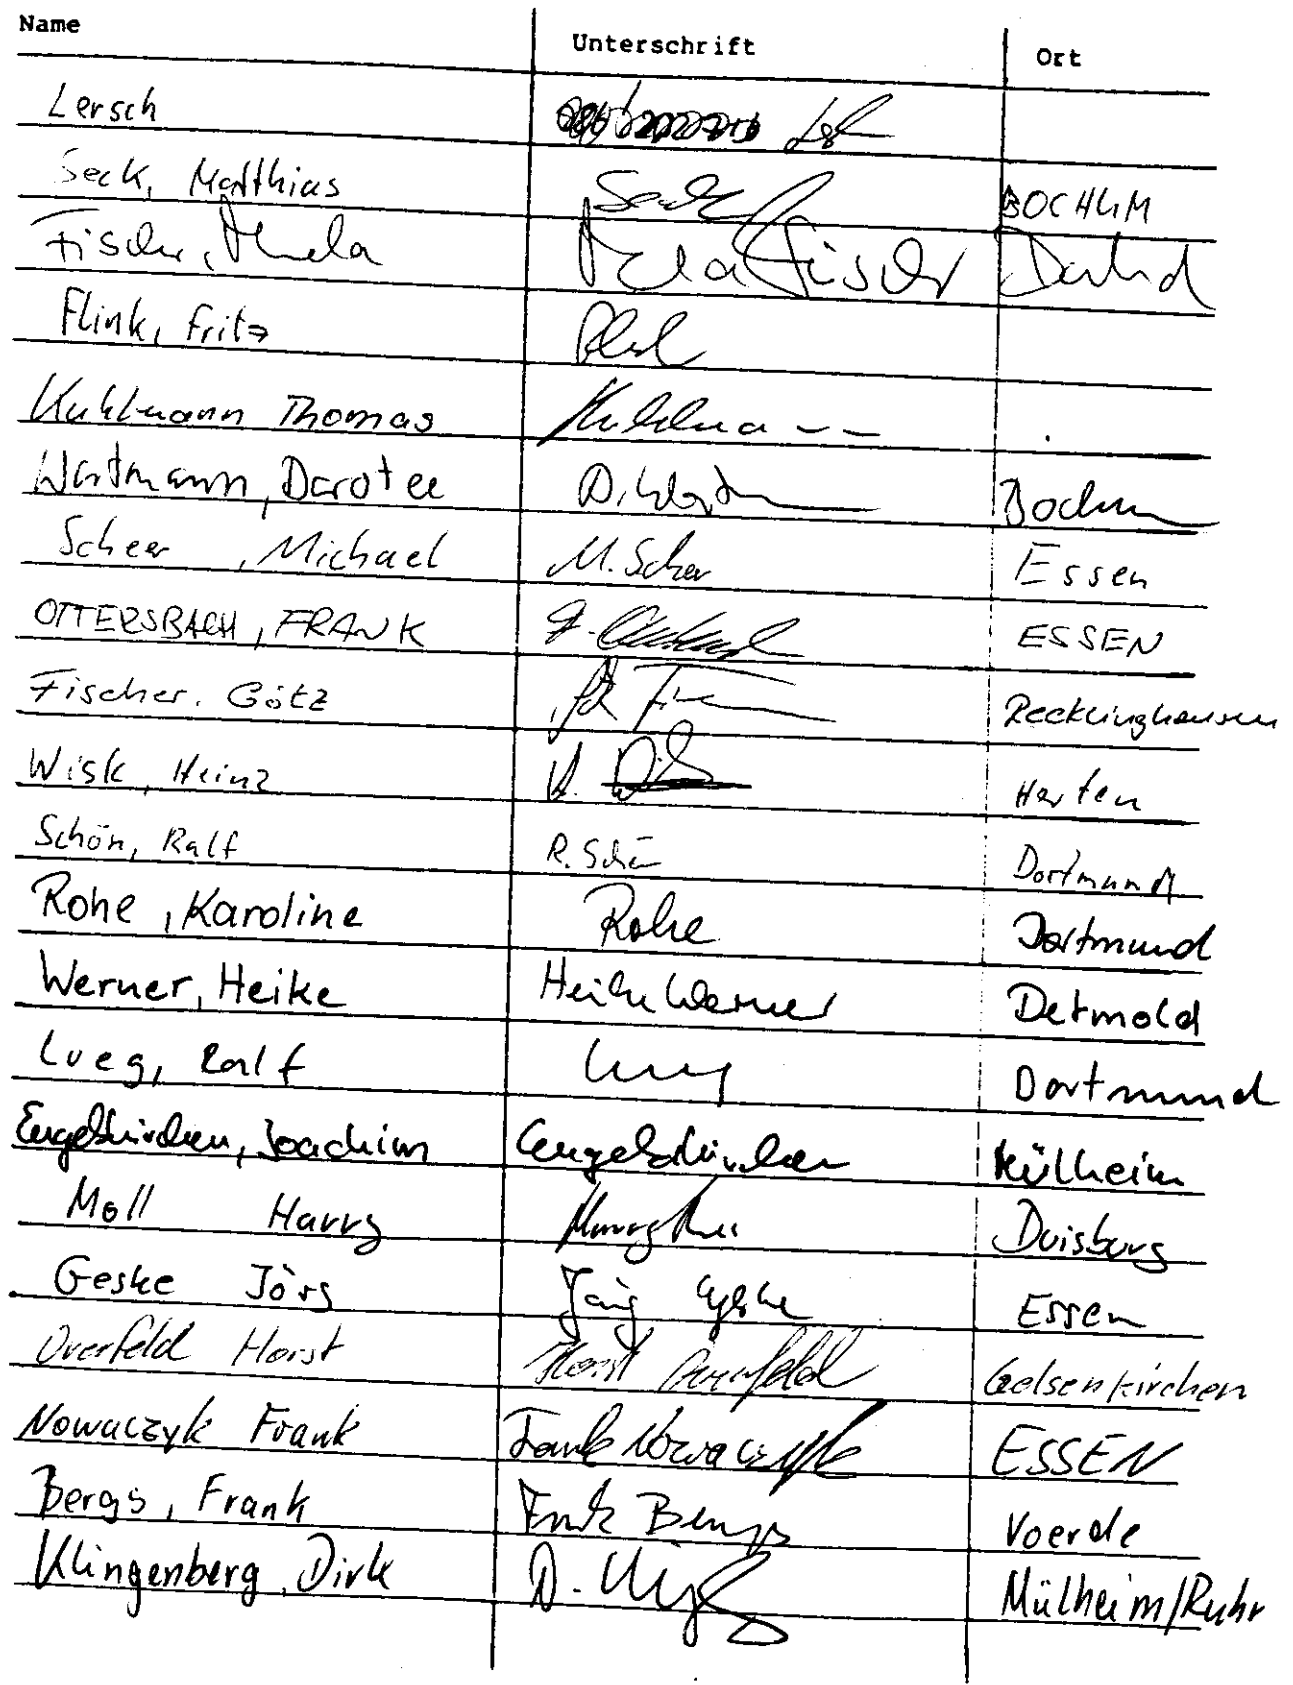 Name Unterschrift Ort
Lersch
Seck, Matthias Seck BOCHUM
Fischer, Fischer
Flink, Fritz
Kuhlmann Thomas Kuhlma--
Wortmann, Dorotee D. Bochum
Scheer, Michael M. Scheer Essen
OTTERSBACH, FRANK F. ESSEN
Fischer, Götz Recklinghausen
Wisk, Heinz H. Herten
Schön, Ralf R. Schön Dortmund
Rohe, Karoline Rohe Dortmund
Werner, Heike Heike Werner Detmold
Lueg, Ralf Lueg Dortmund
Engelskirchen, Joachim Engelskirchen Mülheim
Moll Harry Duisburg
Geske Jörg Jörg Geske Essen
Overfeld Horst Horst Overfeld Gelsenkirchen
Nowaczyk Frank Frank Nowaczyk ESSEN
Bergs, Frank Frank Bergs Voerde
Klingenberg, Dirk D. Mülheim/Ruhr